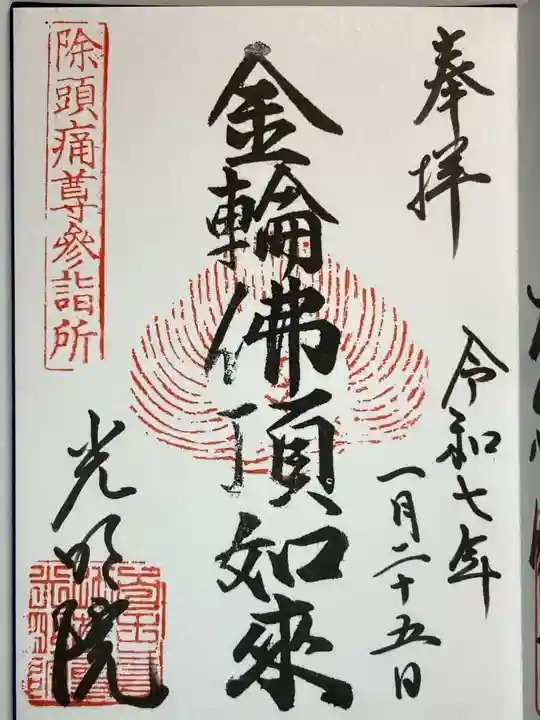 奉拝
令和七年
一月二十五日
金輪佛頂如來
除頭痛尊参詣所
光明院